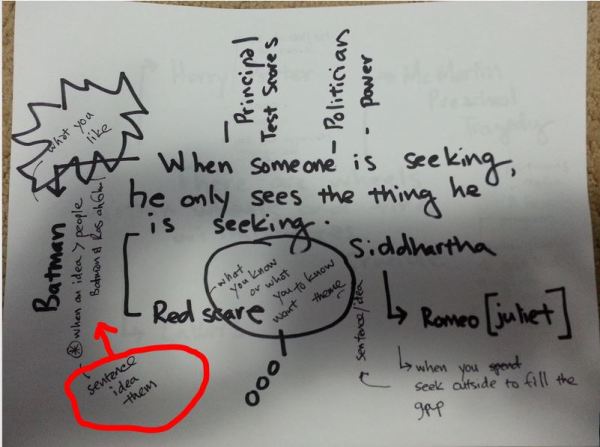 - Principal
Test Scores
- Politician
- Power
what you
like
- When someone is seeking,
he only sees the thing he
is seeking.
Siddhartha
Batman
* when an idea > people
Batman &
what
you know
or what
you to know
want
theme
Red scare
sentence/idea
Romeo [juliet]
when you spend
seek outside to fill the
gap
sentence
idea
them